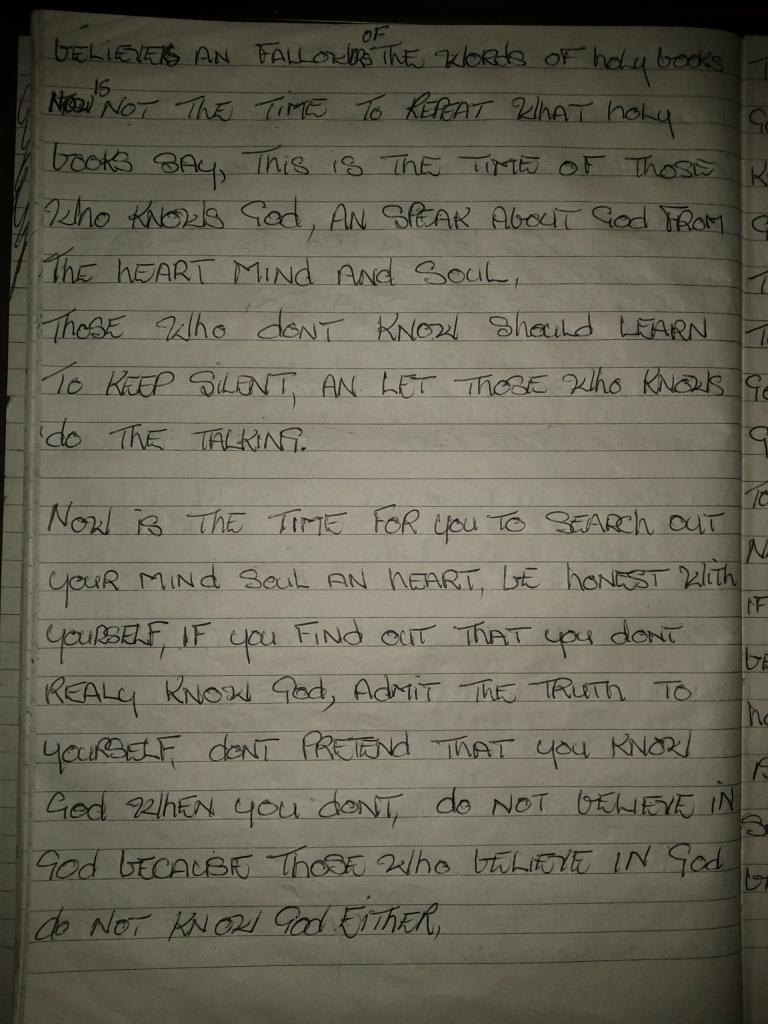 BELIEVERS AN FALLOWERS OF THE WORDS OF holy books
NOW IS NOT THE TIME TO REPEAT WHAT holy
books SAY, THIS IS THE TIME OF THOSE
Who KNOWS God, AN SPEAK ABOUT God FROM
THE hEART MIND AND SOUL,
THOSE Who dONT KNOW Should LEARN
TO KEEP SILENT, AN LET THOSE Who KNOWS
do THE TALKING.
NOW IS THE TIME FOR you TO SEARCH OUT
youR MIND SOUL AN hEART, bE hONEST With
youRSELF, IF you FIND OUT THAT you dONT
REALY KNOW God, AdMIT THE TRUTH TO
youRSELF, dONT PRETEND THAT you KNOW
God WHEN you dONT, do NOT bELIEVE IN
God bECAUSE THOSE Who bELIEVE IN God
do NOT KNOW God EITHER,